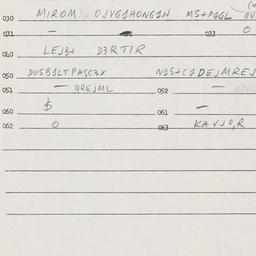 030 MIROM OJVG1HONG1N MS+PQGL
031 — 033 O
040 LEJB+ D3RTIR
050 DUSB1LTPASC3X N1S+C1DEJMREJ
051 — QREJML 052 —
060 $ 061 —
062 O 063 KAVJO,R